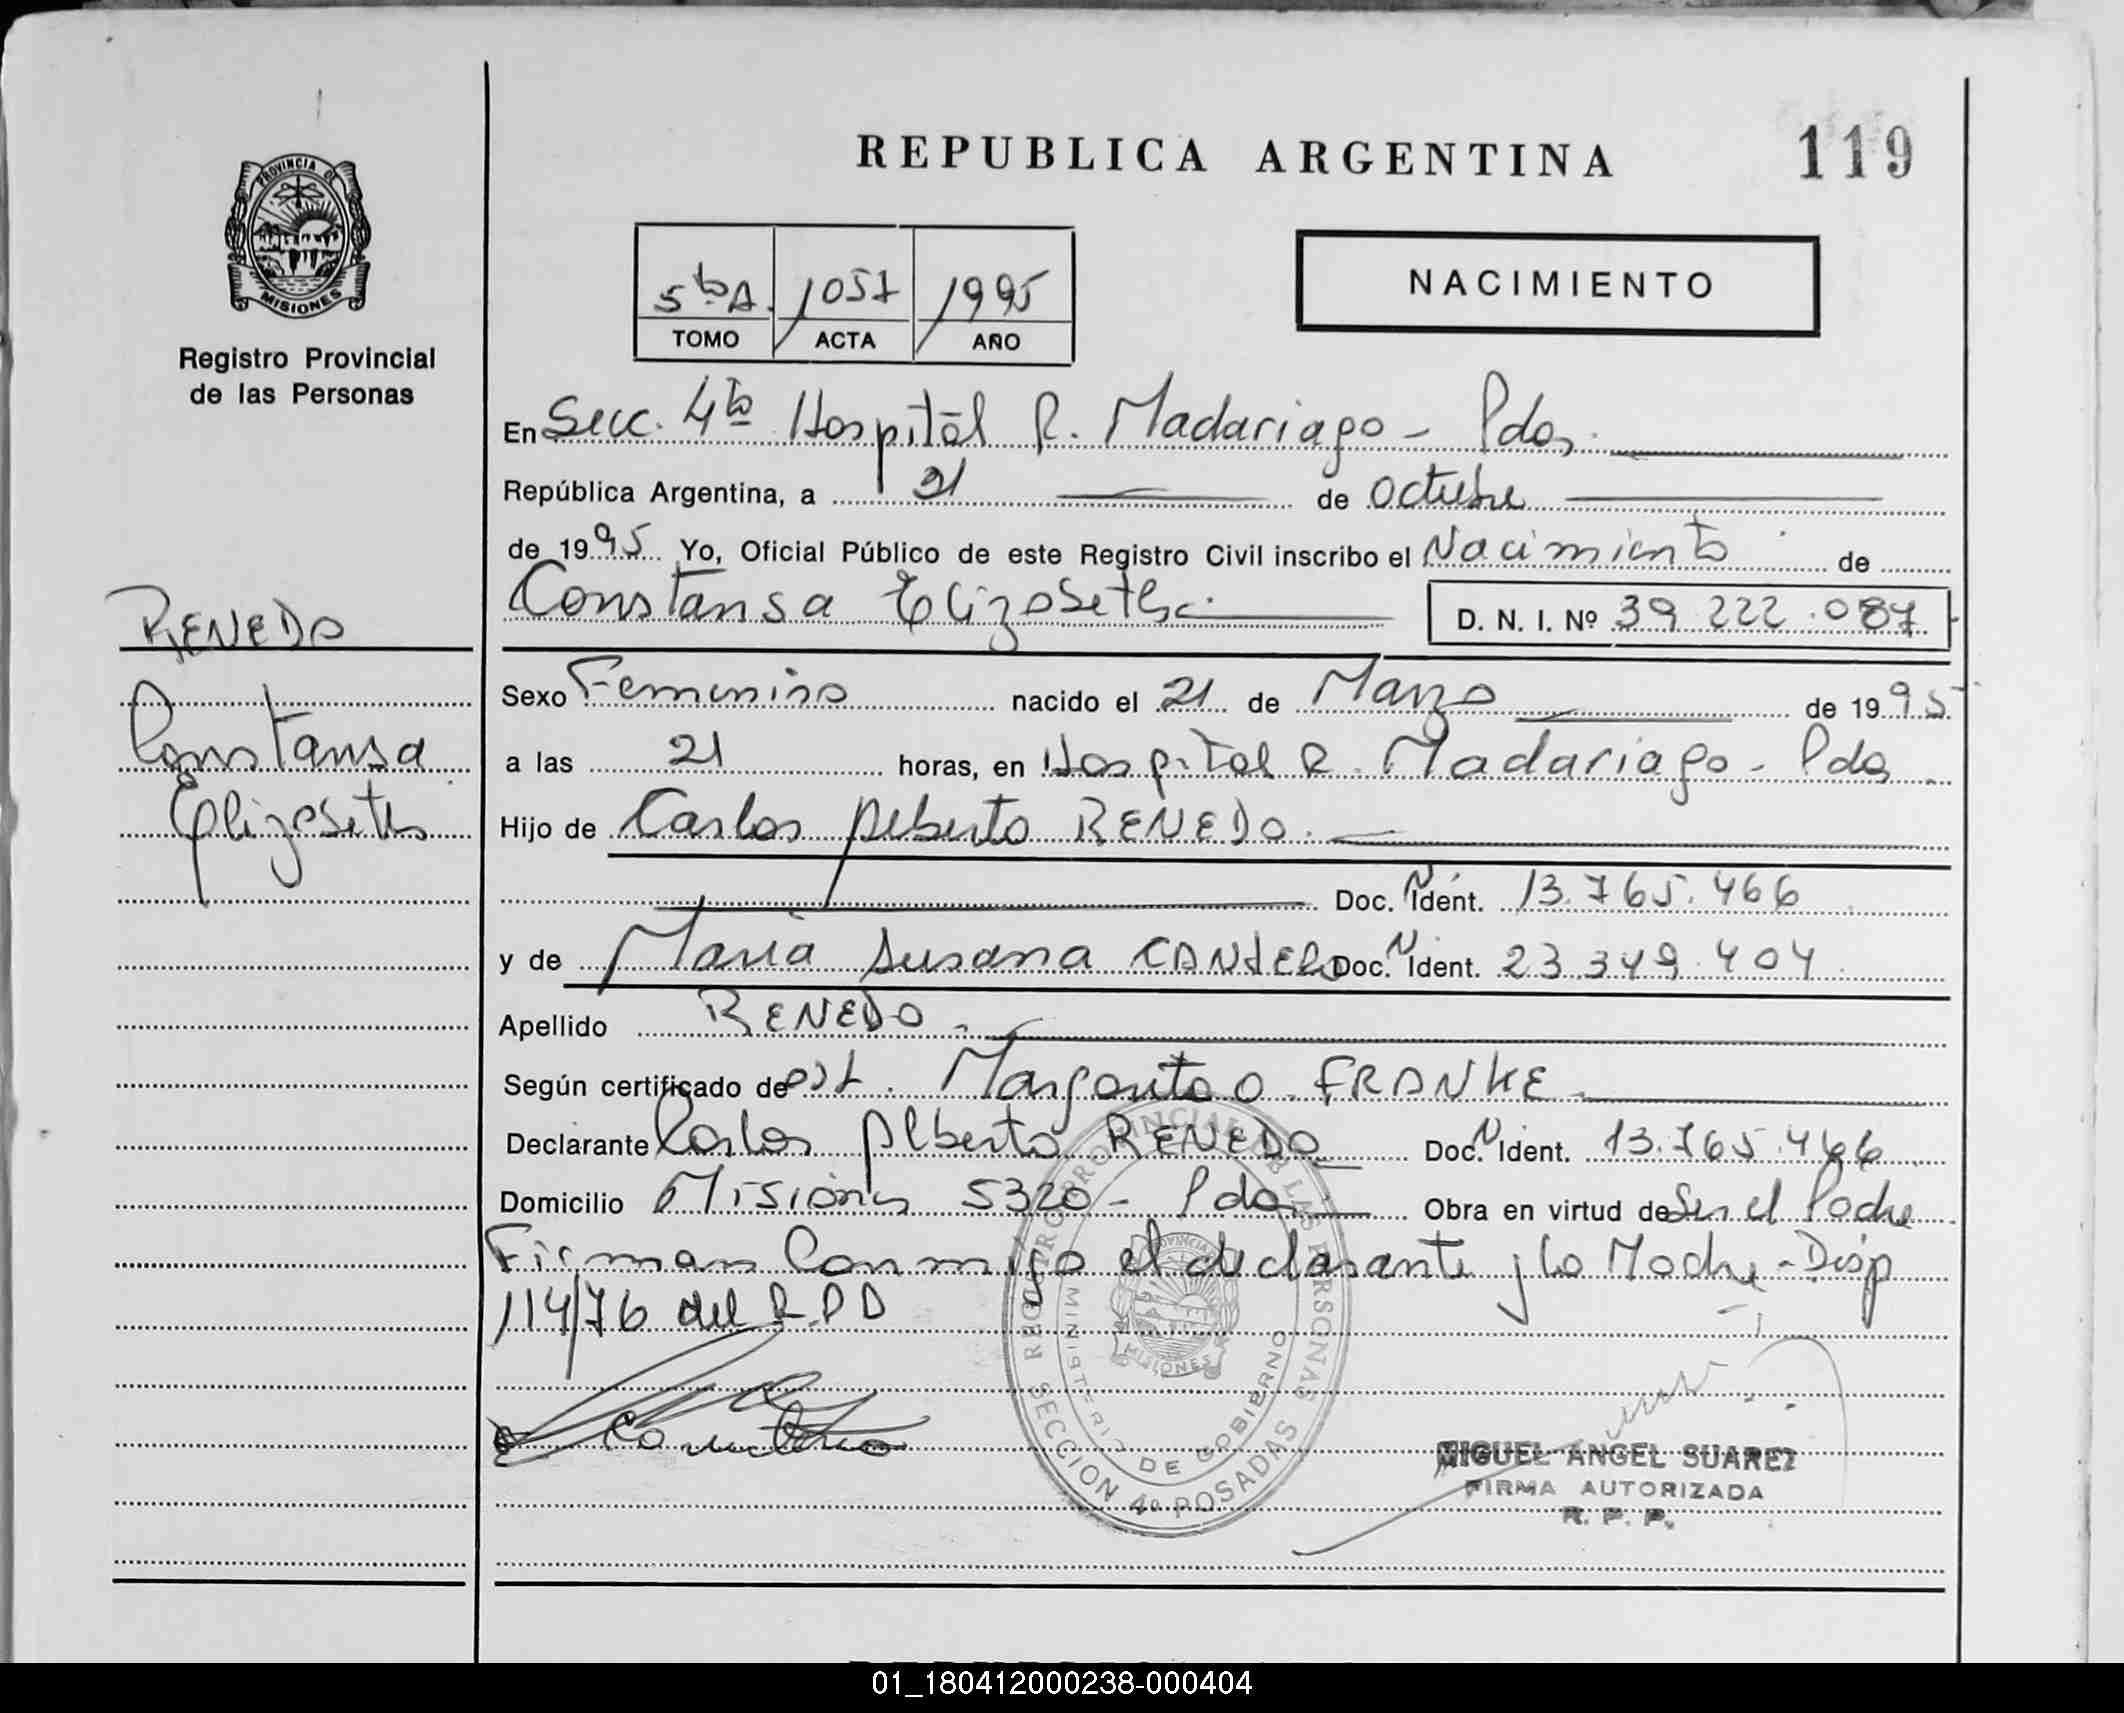 REPUBLICA ARGENTINA
119
PROVINCIA DE
MISIONES
Registro Provincial
de las Personas
5to A. 1057 1995
TOMO ACTA AÑO
NACIMIENTO
En Secc. 4ta Hospital R. Madariaga - Pdas.
República Argentina, a 21 de octubre
de 1995 Yo, Oficial Público de este Registro Civil inscribo el Nacimiento de
Constansa Elizabeth.
D. N. I. Nº 39 222 087
RENEDO
Constansa
Elizabeth
Sexo Femenino nacido el 21 de Marzo de 1995
a las 21 horas, en Hospital R. Madariaga - Pdas
Hijo de Carlos Alberto RENEDO.
Doc. N Ident. 13.765.466
y de Maria Susana CANTERO Doc. N Ident. 23 349 404
Apellido RENEDO.
Según certificado de obst. Margarita O. FRANKE
Declarante Carlos Alberto RENEDO Doc. N Ident. 13.765.466
Domicilio Misiones 5320 - Pdas Obra en virtud de Ser el Padre
Firman Conmigo el declarante y la Madre - Disp
114/76 del R.P.P
REGISTRO PROVINCIAL DE LAS PERSONAS
MINISTERIO DE GOBIERNO
SECCION 4º POSADAS
MISIONES
MIGUEL ANGEL SUAREZ
FIRMA AUTORIZADA
R. P. P.
01_180412000238-000404